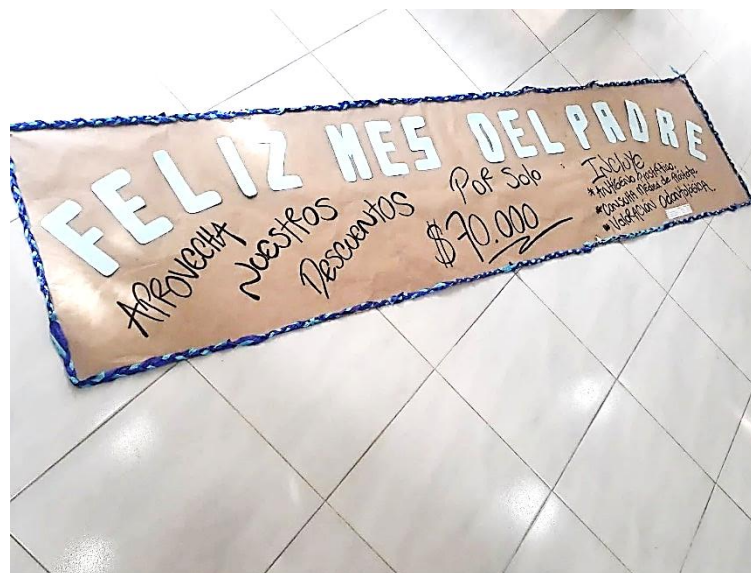 FELIZ MES DEL PADRE
APROVECHA
NUESTROS
DESCUENTOS
POR SOlO:
$70.000
INCluye
*ANtígeno Prostático.
*CONSUltA MédicA de
*ValorACIÓN OdontológicA.